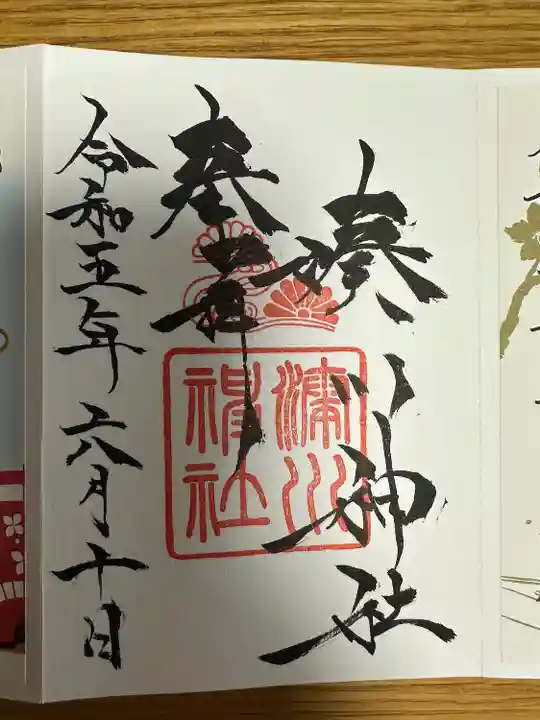 湊川神社
奉拝
令和五年六月十日
湊川
神社